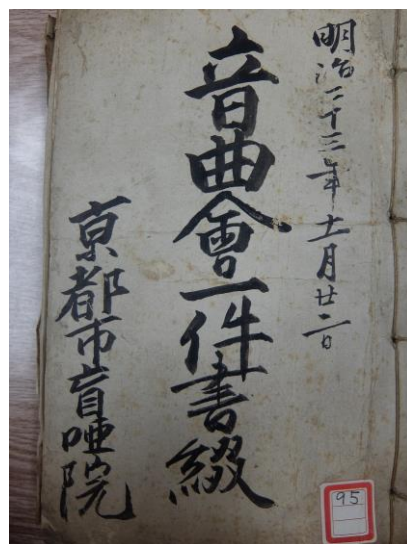 明治二十三年十一月廿二日
音曲會一件書綴
京都市盲唖院
95